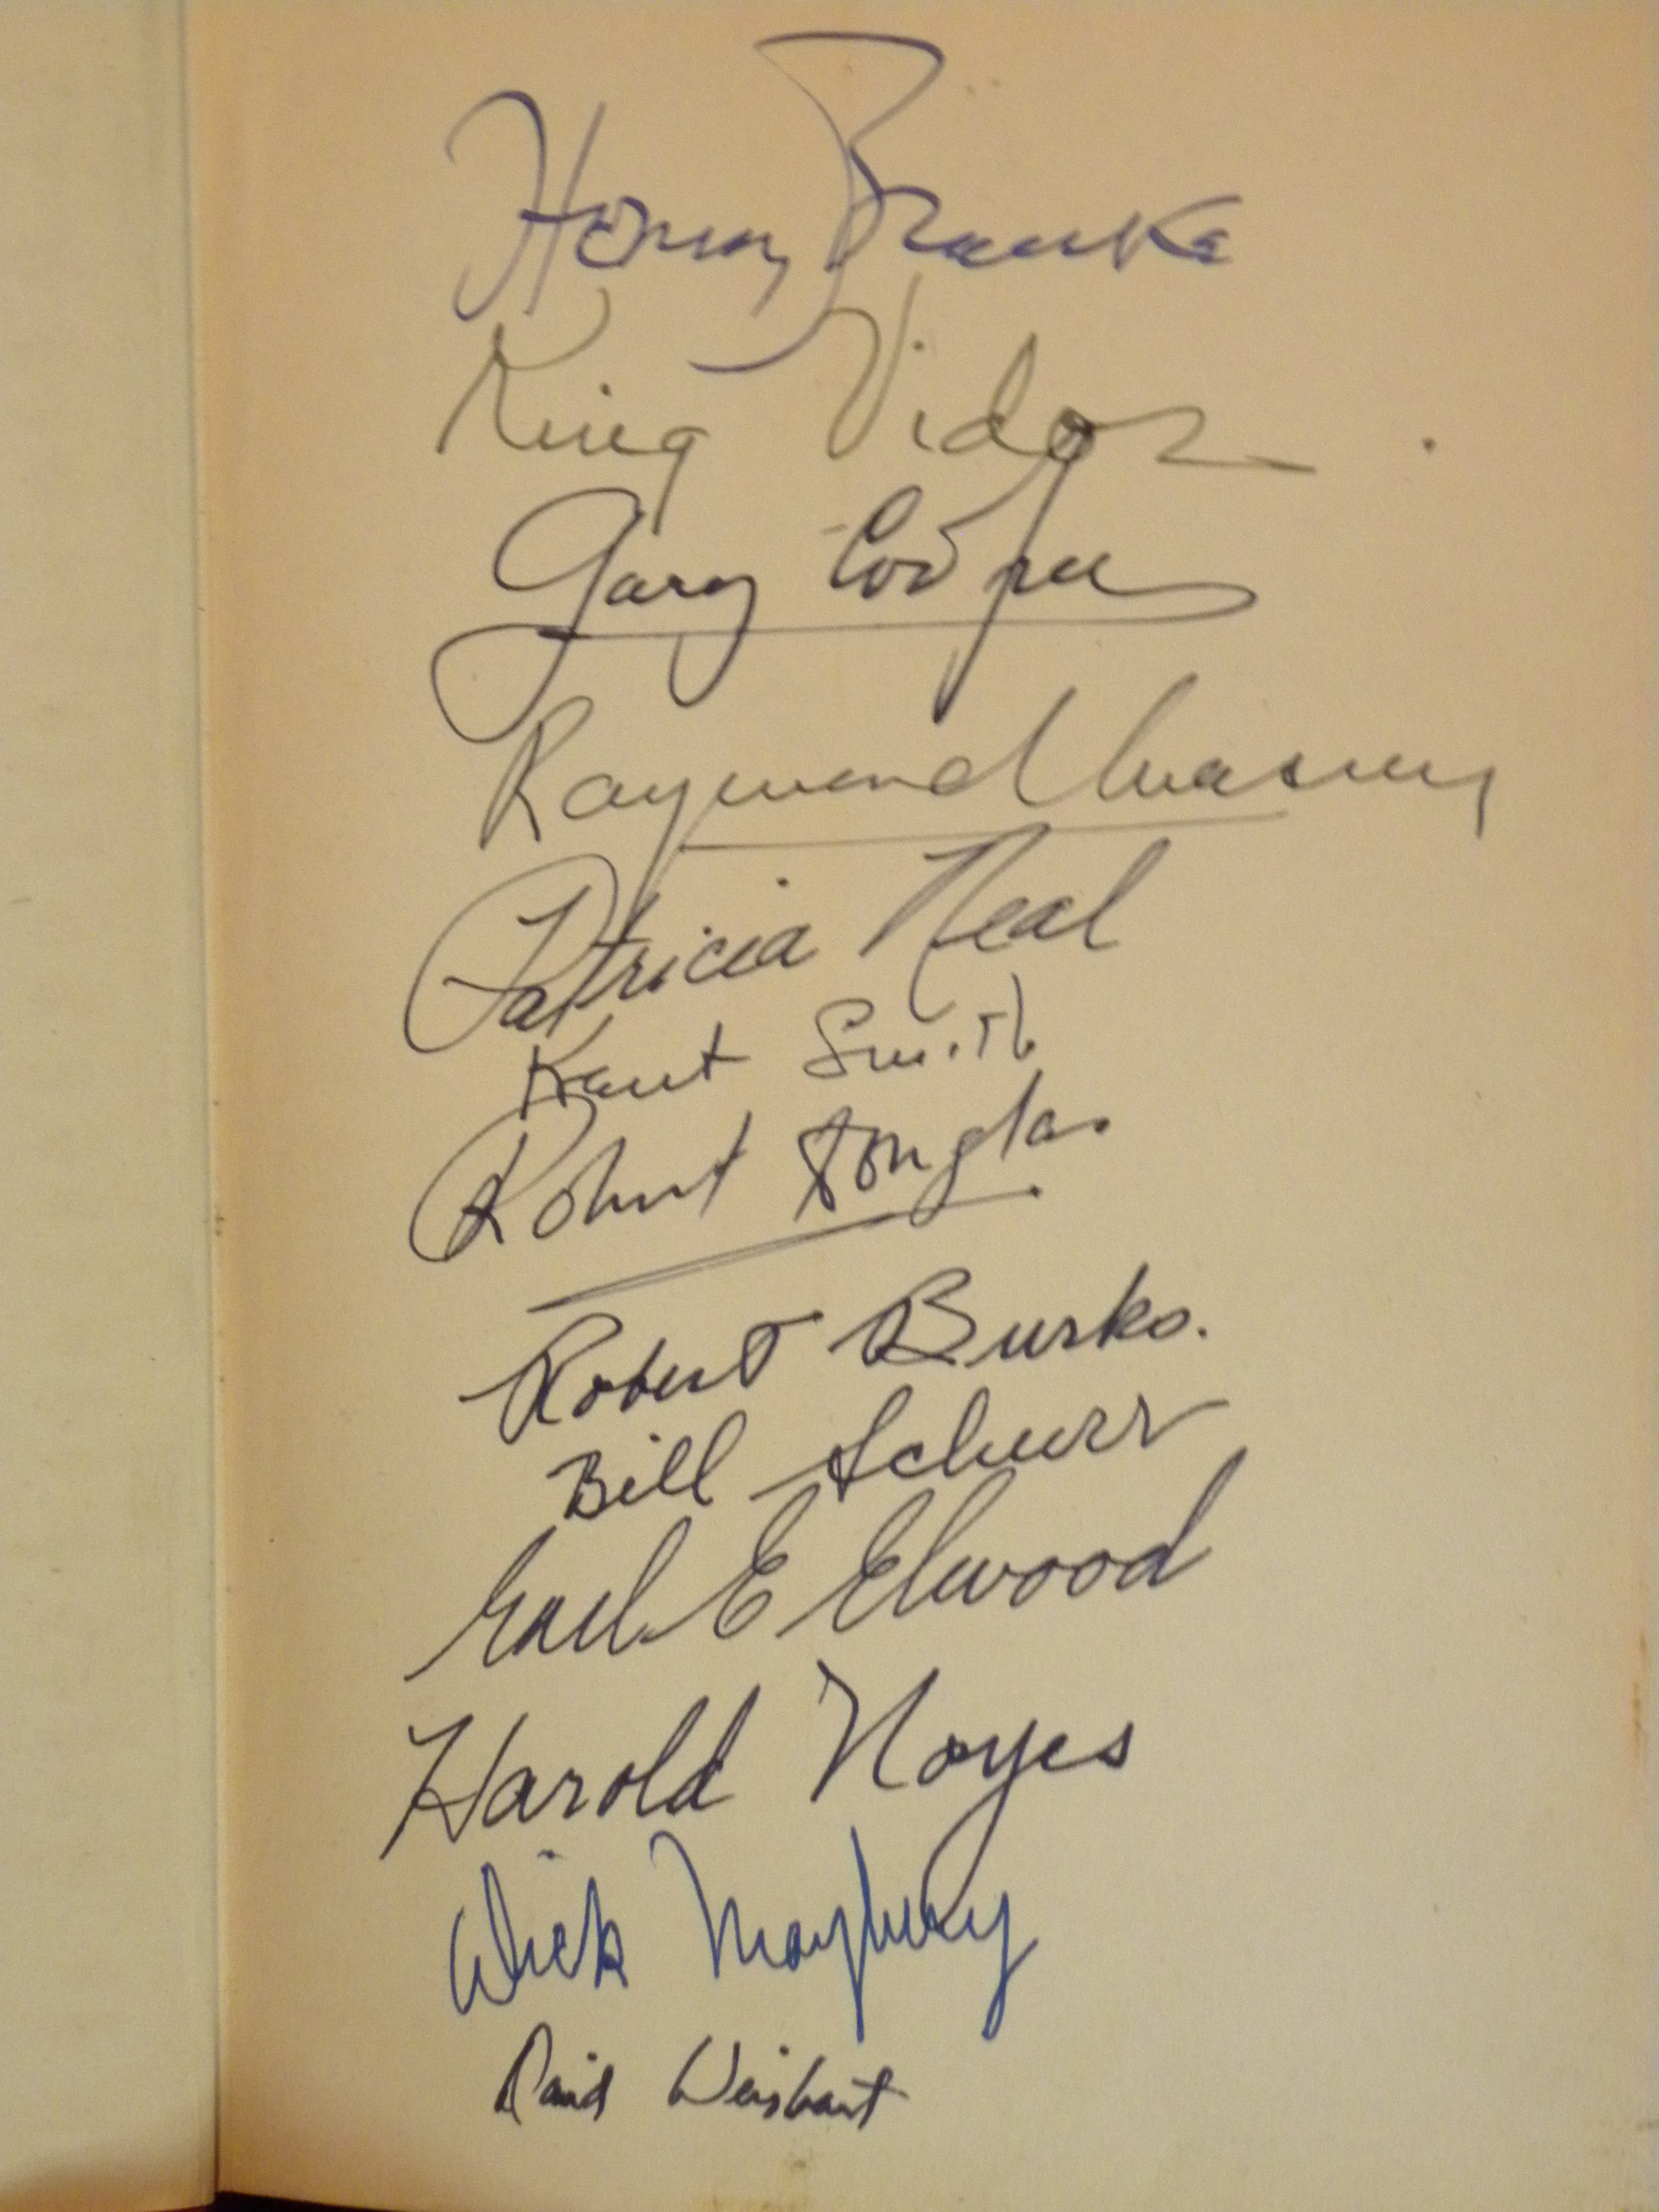 Henry Blanke
King Vidor
Gary Cooper
Raymond Massey
Patricia Neal
Kent Smith
Robert Douglas
Robert Burks.
Bill Schurr
Earl E Elwood
Harold Noyes
Dick Mayberry
David Weisbart